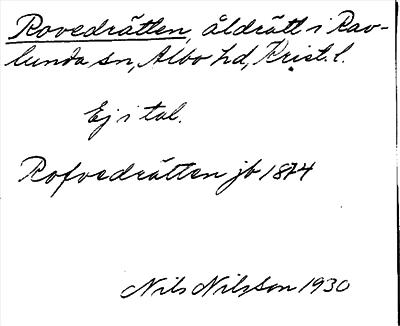 Rovedrätten, åldrätt i Rav-
lunda sn, Albo hd, Krist. l.
Ej i tal.
Rofvedrätten jb 1874
Nils Nilsson 1930